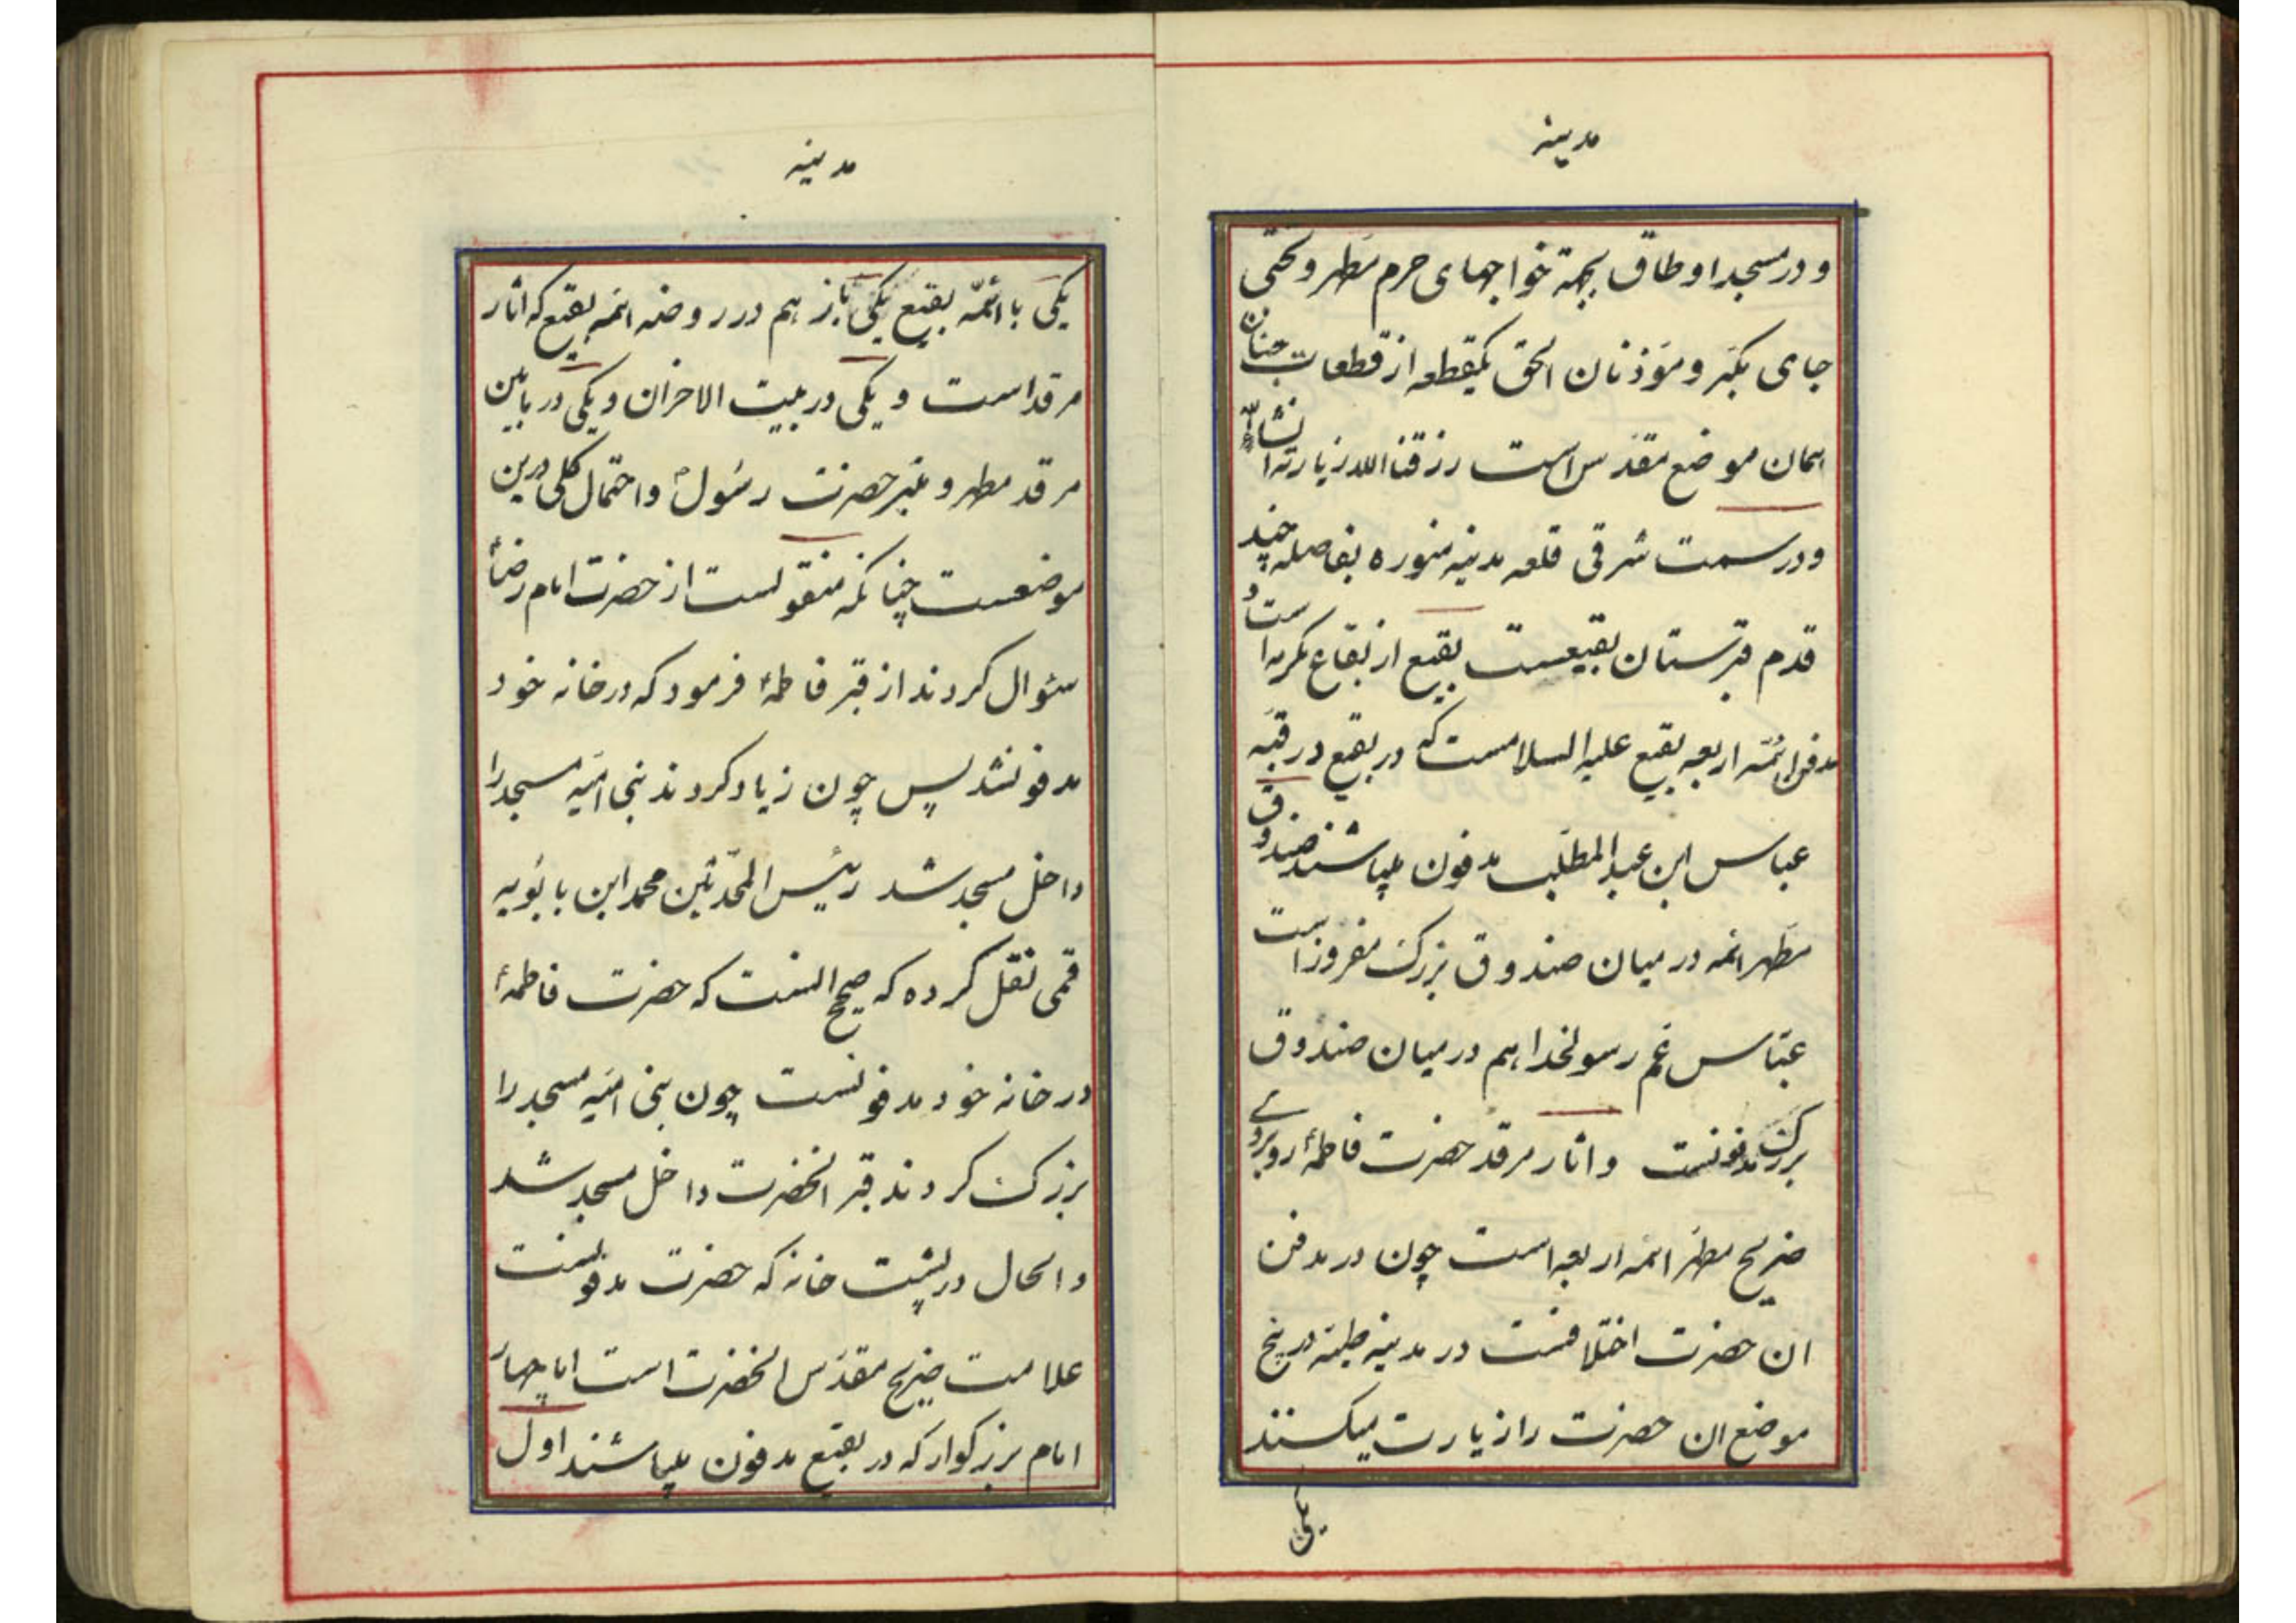 مدینه
و در مسجد اوطاق بجهة خواجهای حرم مطهر و تختی
جای مکبر و مؤذنان الحق یکقطعه از قطعات جنان
اسمان موضع مقدس است رزقنا الله زیارته انشاالله
و در سمت شرقی قلعه مدینه منوره بفاصله چند
قدم قبرستان بقیعست بقیع از بقاع مکرمه است و
مدفن ائمه اربعه بقیع علیه السلامست که در بقیع در قبه
عباس ابن عبدالمطلب مدفون میباشند صندوق
مطهر ائمه در میان صندوق بزرک مفروز است
عباس عم رسولخدا هم در میان صندوق
بزرک مدفونست و اثار مرقد حضرت فاطمهٔ روبروے
ضریح مطهر ائمه اربعه است چون در مدفن
ان حضرت اختلافست در مدینه طیبه در پنج
موضع ان حضرت را زیارت میکنند
یکی
مدینه
یکی با ائمه بقیع یکی باز هم در روضه ائمه بقیع که اثار
مرقد است و یکی در بیت الاحزان و یکی در مابین
مرقد مطهر و منبر حضرت رسولؐ و احتمال کلی درین
موضعست چنانکه منقولست از حضرت امام رضاؑ
سئوال کردند از قبر فاطمهٔ فرمود که در خانه خود
مدفونشد پس چون زیاد کردند بنی امیه مسجد را
داخل مسجد شد رئیس المحدثین محمد ابن بابویه
قمی نقل کرده که صحیح النست که حضرت فاطمهٔ
در خانه خود مدفونست چون بنی امیه مسجد را
بزرک کردند قبر انحضرت داخل مسجد شد
و الحال در پشت خانه که حضرت مدفونست
علامت ضریح مقدس انحضرت است اما چهار
امام بزرکوار که در بقیع مدفون میباشند اول